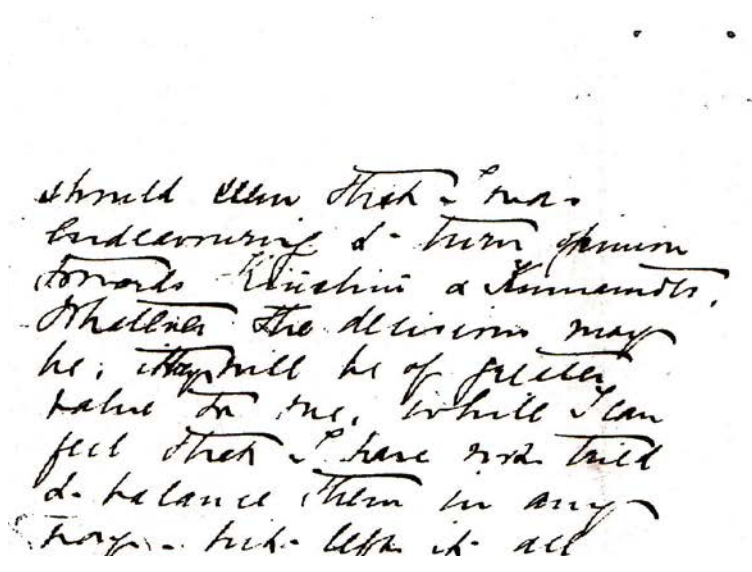 should seem that I was
endeavouring to turn opinion
towards Kiushiu & Kumamoto.
Whatever the decision may
be, will be of greater
value to me, while I can
feel that I have not tried
to balance them in any
way - but left it all